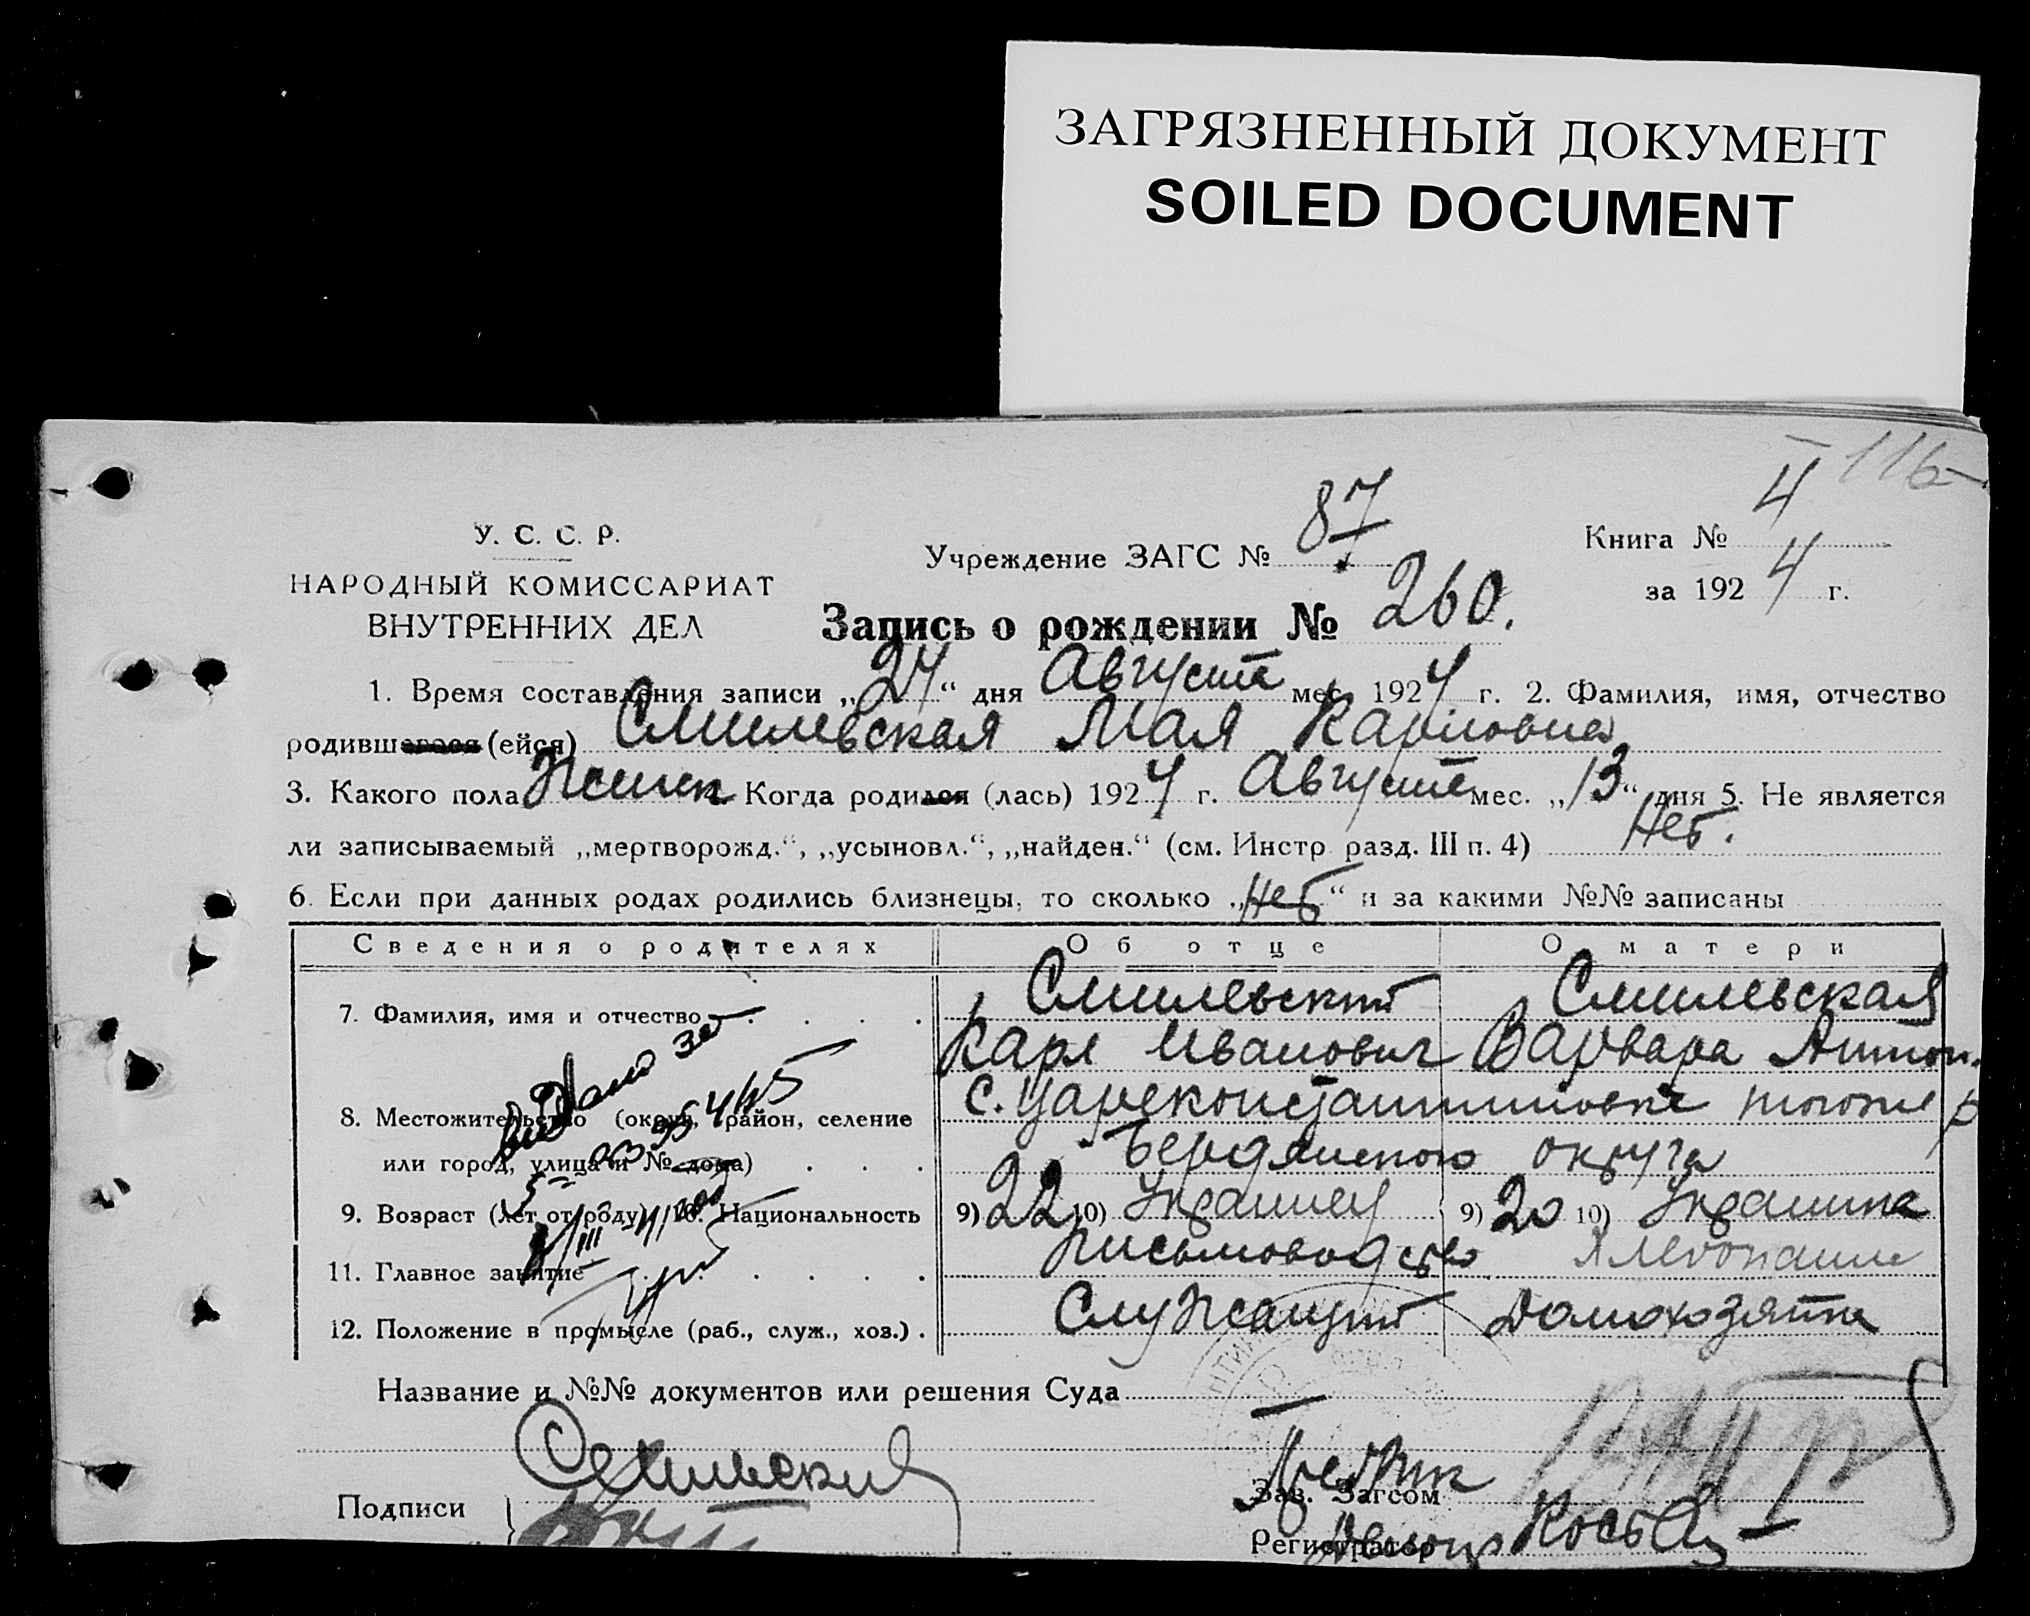 ЗАГРЯЗНЕННЫЙ ДОКУМЕНТ
SOILED DOCUMENT
116
У. С. С. Р.
НАРОДНЫЙ КОМИССАРИАТ
ВНУТРЕННИХ ДЕЛ
Учреждение ЗАГС № 87
Книга № 4
за 1924 г.
Запись о рождении № 260.
1. Время составления записи „24“ дня Августа мес. 1924 г. 2. Фамилия, имя, отчество
родившегося (ейся) Смилевская Мая Карловна
3. Какого пола Женск Когда родился (лась) 1924 г. Августа мес. „13“ дня 5. Не является
ли записываемый „мертворожд.“, „усыновл.“, „найден.“ (см. Инстр. разд. III п. 4) Нет.
6. Если при данных родах родились близнецы, то сколько „нет“ и за какими №№ записаны
Сведения о родителях Об отце О матери
7. Фамилия, имя и отчество Смилевский Смилевская
Карл Иванович Варвара Антон.
8. Местожительство (округ, район, селение с. Цареконстантиновка того же р
или город, улица и № дома) Бердянского округа
9. Возраст (лет от роду) 10. Национальность 9) 22 10) Украинец 9) 20 10) Украинка
11. Главное занятие Письмоводство
12. Положение в промысле (раб., служ., хоз.) Служащий Домохозяйка
Название и №№ документов или решения Суда
Подписи
Зав. Загсом
Регистратор